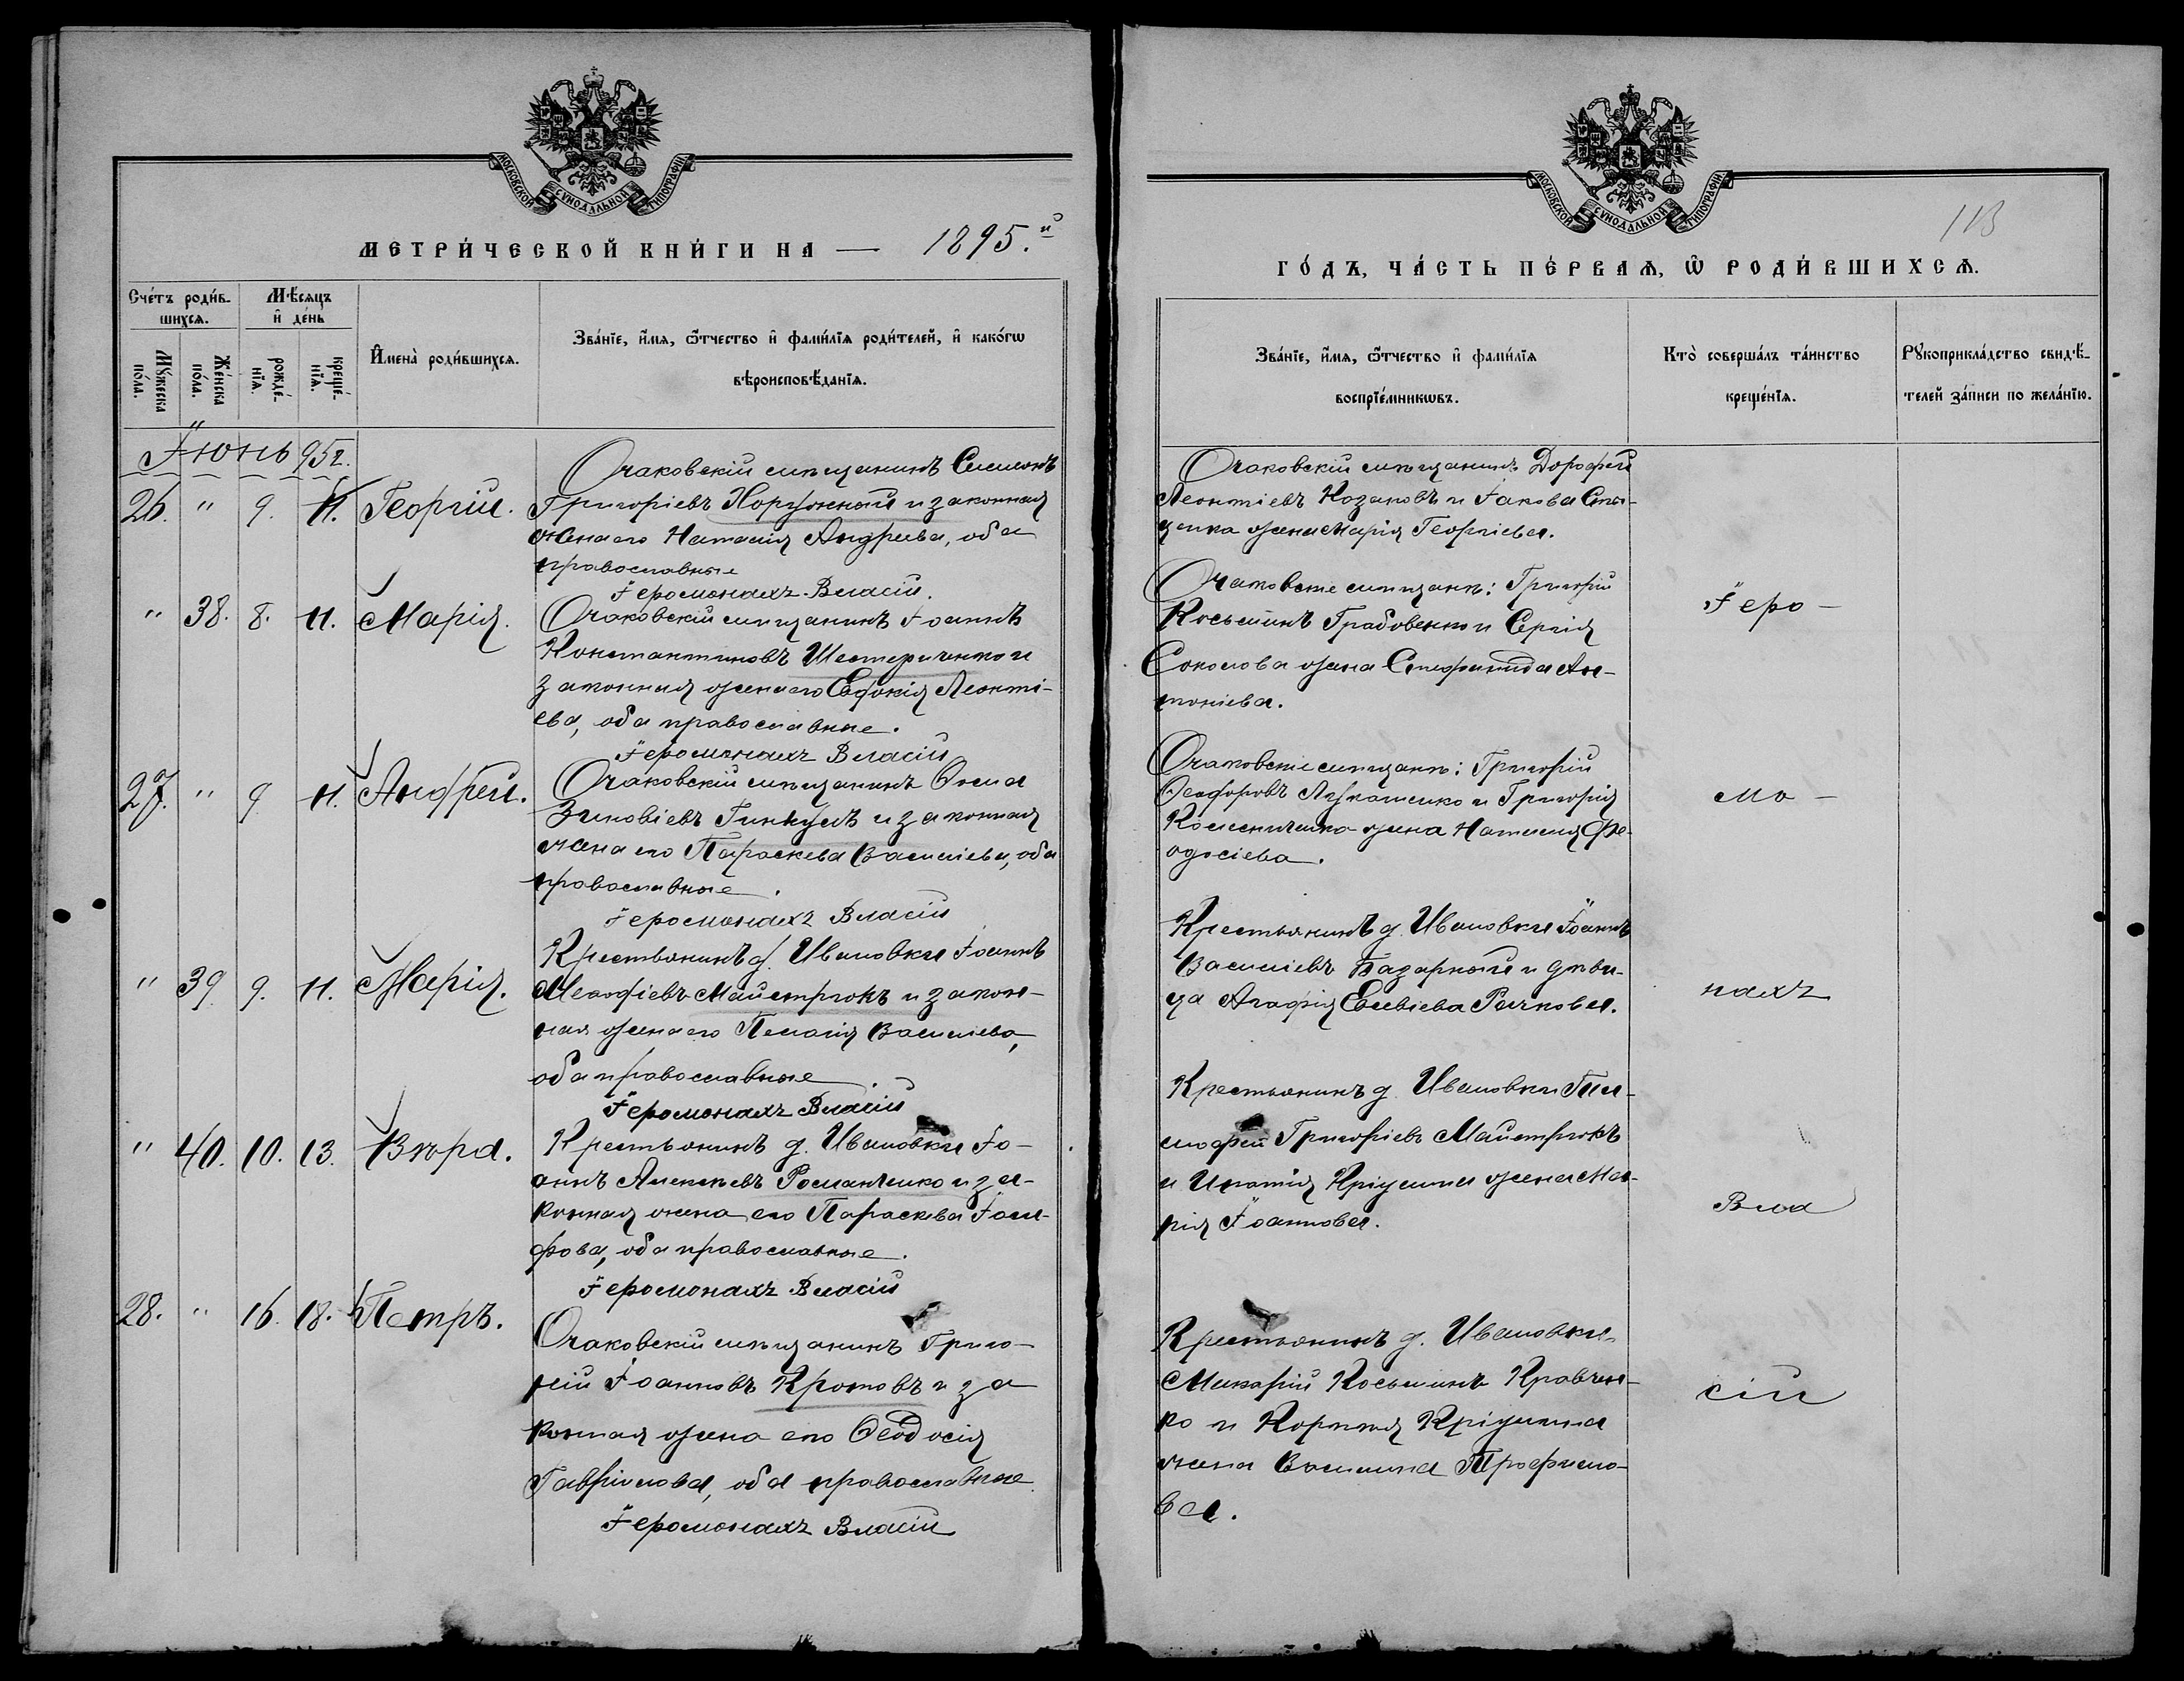 МОСКОВСКОЙ СѴНОДАЛЬНОЙ ТИПОГРАФІИ
МЕТРИ́ЧЕСКОЙ КНИ́ГИ НА — 1895.й
Сче́тъ роди́в-
шихсѧ.
Мѣ́сѧцъ
и҆ де́нь
Мꙋ́жеска по́ла.
Же́нска по́ла.
рожде́-
нїѧ.
креще́-
нїѧ.
И҆мена̀ роди́вшихсѧ.
Зва́нїе, и҆́мѧ, ѻ҆́тчество и҆ фами́лїѧ роди́телей, и҆ како́гѡ
вѣроисповѣ́данїѧ.
Іюнь 95г.
26. " 9. 11. Георгій.
Очаковскій мѣщанинъ Симеонъ
Григоріевъ Коржонный и законная
жена его Наталія Андреева, оба
православные
Іеромонахъ Власій.
" 38. 8. 11. Марія.
Очаковскій мѣщанинъ Іоаннъ
Константиновъ Шестериченко и
законная жена его Евдокія Леонті-
ева, оба православные.
Іеромонахъ Власій
27. " 9 11. Андрей.
Очаковскій мѣщанинъ Ѳома
Зиновіевъ Гинкулъ и законная
жена его Параскева Василіева, оба
православные.
Іеромонахъ Власій
" 39 9. 11. Марія.
Крестьянинъ д. Ивановки Іоаннъ
Меѳодіевъ Майстрюкъ и закон-
ная жена его Пелагія Василіева,
оба православные.
Іеромонахъ Власій
" 40. 10. 13. Вѣра.
Крестьянинъ д. Ивановки Іо-
аннъ Алексѣевъ Романченко и за-
конная жена его Параскева Іоси-
фова, оба православные.
Іеромонахъ Власій
28. " 16. 18. Петръ.
Очаковскій мѣщанинъ Григо-
рій Іоанновъ Кротовъ и за
конная жена его Ѳеодосія
Гавріилова, оба православные.
Іеромонахъ Власій
МОСКОВСКОЙ СѴНОДАЛЬНОЙ ТИПОГРАФІИ
113
ГО́ДЪ, ЧА́СТЬ ПЕ́РВАѦ, Ѡ҆ РОДИ́ВШИХСѦ.
Зва́нїе, и҆́мѧ, ѻ҆́тчество и҆ фами́лїѧ
воспрїе́мникѡвъ.
Кто̀ соверша́лъ та́инство
креще́нїѧ.
Рꙋкоприкла́дство свидѣ́-
телей за́писи по жела́нїю.
Очаковскій мѣщанинъ Дороѳей
Леонтіевъ Козаковъ и Іакова
жена Марія Георгіева.
Очаковскіе мѣщане: Григорій
Косьминъ Грабовенко и Сергія
Соколова жена Стефанида Ан-
тоніева.
Очаковскіе мѣщане: Григорій
Ѳеодоровъ Лукашенко и Григорія
Колесниченко жена Наталія Ѳе-
одосіева.
Крестьянинъ д. Ивановки Іоаннъ
Василіевъ Базарный и дѣви-
ца Агафія Евсевіева Рачкова.
Крестьянинъ д. Ивановки Ти-
моѳей Григоріевъ Майстрюкъ
и Игнатія жена Ма-
рія Іоаннова.
Крестьянинъ д. Ивановки
Макарій Косьминъ Кравчен-
ко и Корнилія
жена Василина Трофимо-
ва.
Іеро-
мо-
нахъ
Вла
сій